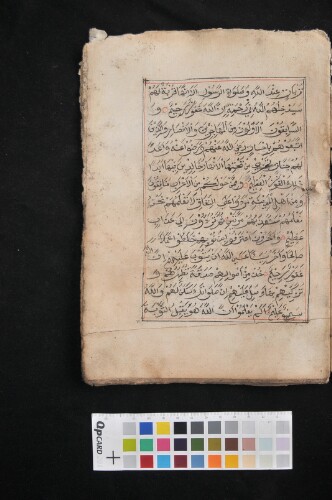 قربات عند الله وصلوات الرسول الا انها قربة لهم
سيدخلهم الله في رحمته ان الله غفور رحيم و
السابقون الاولون من المهاجرين والانصار والذين
اتبعوهم باحسان رضي الله عنهم ورضوا عنه واعد
لهم جنات تجري من تحتها الانهار خالدين فيها ابدا
ذلك الفوز العظيم وممن حولكم من الاعراب منافقون
ومن اهل المدينة مردوا على النفاق لا تعلمهم نحن
نعلمهم سنعذبهم مرتين ثم يردون الى عذاب
عظيم واخرون اعترفوا بذنوبهم خلطوا عملا
صالحا واخر سيئا عسى الله ان يتوب عليهم ان الله
غفور رحيم خذ من اموالهم صدقة تطهرهم و
تزكيهم بها وصل عليهم ان صلوتك سكن لهم والله
سميع عليم الم يعلموا ان الله هو يقبل التوبة
QPCARD